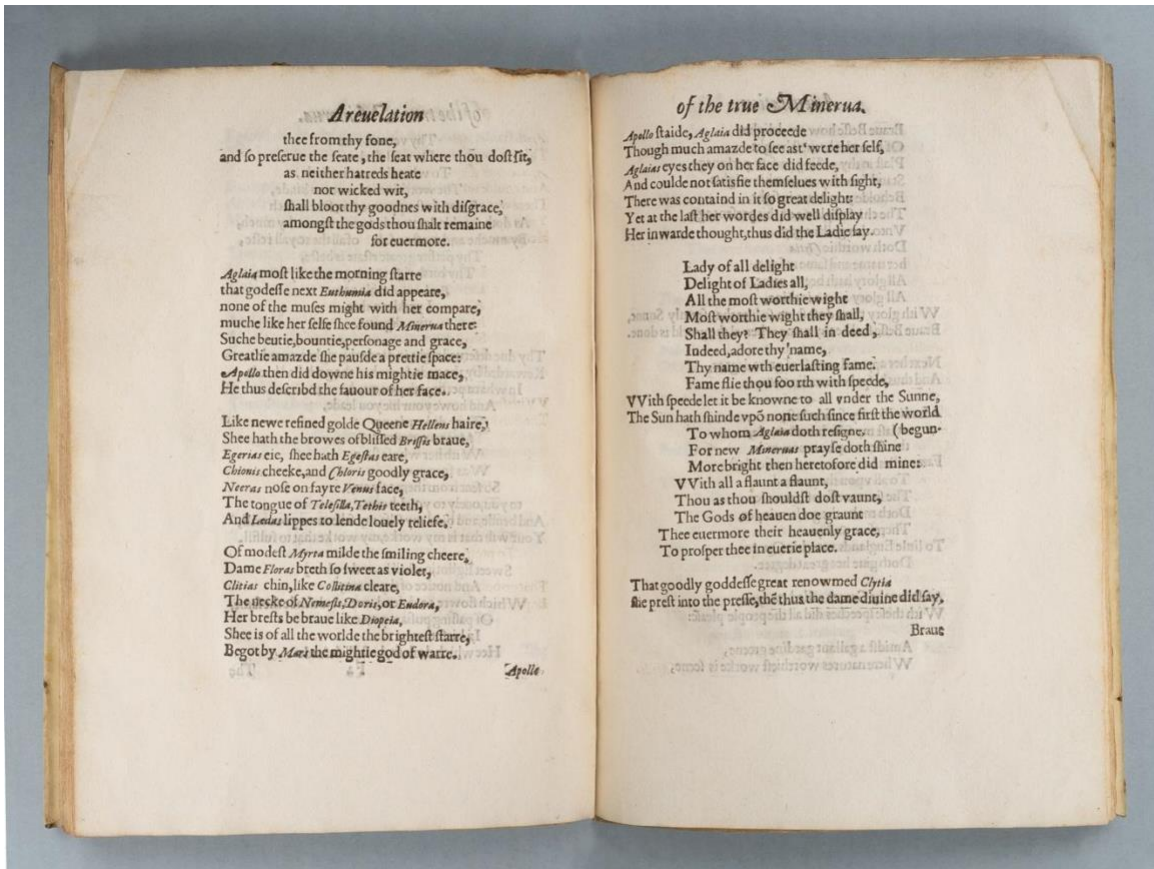 A reuelation
thee from thy fone,
and so preserue the seate, the seat where thou dost sit,
as neither hatreds heate
nor wicked wit,
shall bloot thy goodnes with disgrace,
amongst the gods thou shalt remaine
for euermore.
Aglaia most like the morning starre
that godesse next Euthumia did appeare,
none of the muses might with her compare,
muche like her selfe shee found Minerua there:
Suche beutie, bountie, personage and grace,
Greatlie amazde she pausde a prettie space:
Apollo then did downe his mightie mace,
He thus describd the fauour of her face.
Like newe refined golde Queene Hellens haire,
Shee hath the browes of blissed Brissis braue,
Egerias eie, shee hath Egestas eare,
Chionis cheeke, and Chloris goodly grace,
Neeras nose on fayre Venus face,
The tongue of Telesilla, Tethis teeth,
And Laedas lippes to lende louely reliefe,
Of modest Myrta milde the smiling cheere,
Dame Floras breth so sweet as violet,
Clitias chin, like Collitina cleare,
The necke of Nemesis, Doris, or Eudora,
Her brests be braue like Diopeia,
Shee is of all the worlde the brightest starre,
Begot by Mars the mightie god of warre.
Apollo
of the true Minerua.
Apollo staide, Aglaia did proceede
Though much amazde to see ast' were her self,
Aglaias eyes they on her face did feede,
And coulde not satisfie themselues with sight,
There was containd in it so great delight:
Yet at the last her wordes did well display
Her inwarde thought, thus did the Ladie say.
Lady of all delight
Delight of Ladies all,
All the most worthie wight
Most worthie wight they shall,
Shall they? They shall in deed,
Indeed, adore thy name,
Thy name wth euerlasting fame.
Fame flie thou foorth with speede,
VVith speede let it be knowne to all vnder the Sunne,
The Sun hath shinde vpõ none such since first the world
To whom Aglaia doth resigne. (begun.
For new Mineruas prayse doth shine
More bright then heretofore did mine:
VVith all a flaunt a flaunt,
Thou as thou shouldst dost vaunt,
The Gods of heauen doe graunt
Thee euermore their heauenly grace,
To prosper thee in euerie place.
That goodly goddesse great renowmed Clytia
she prest into the presse, thẽ thus the dame diuine did say,
Braue